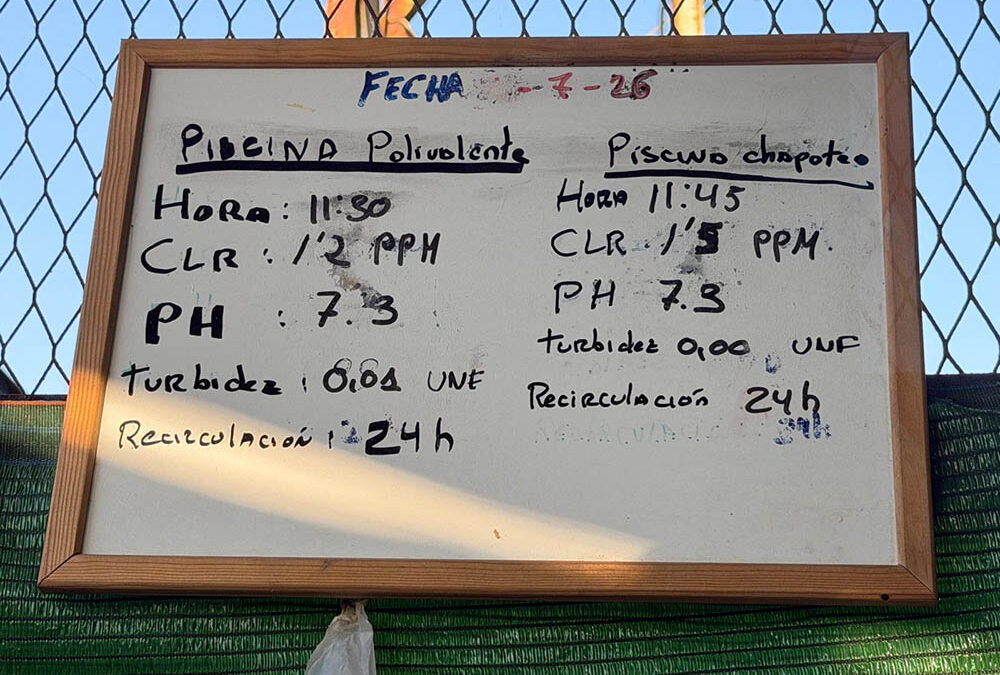 FECHA -7-26
PISCINA Polivalente
HORA: 11:30
CLR: 1'2 PPM
PH : 7.3
turbidez: 0,01 UNF
Recirculación: 24h
Piscina chapoteo
HORA 11:45
CLR 1'5 PPM.
PH 7.3
turbidez 0,00 UNF
Recirculación 24h
24h